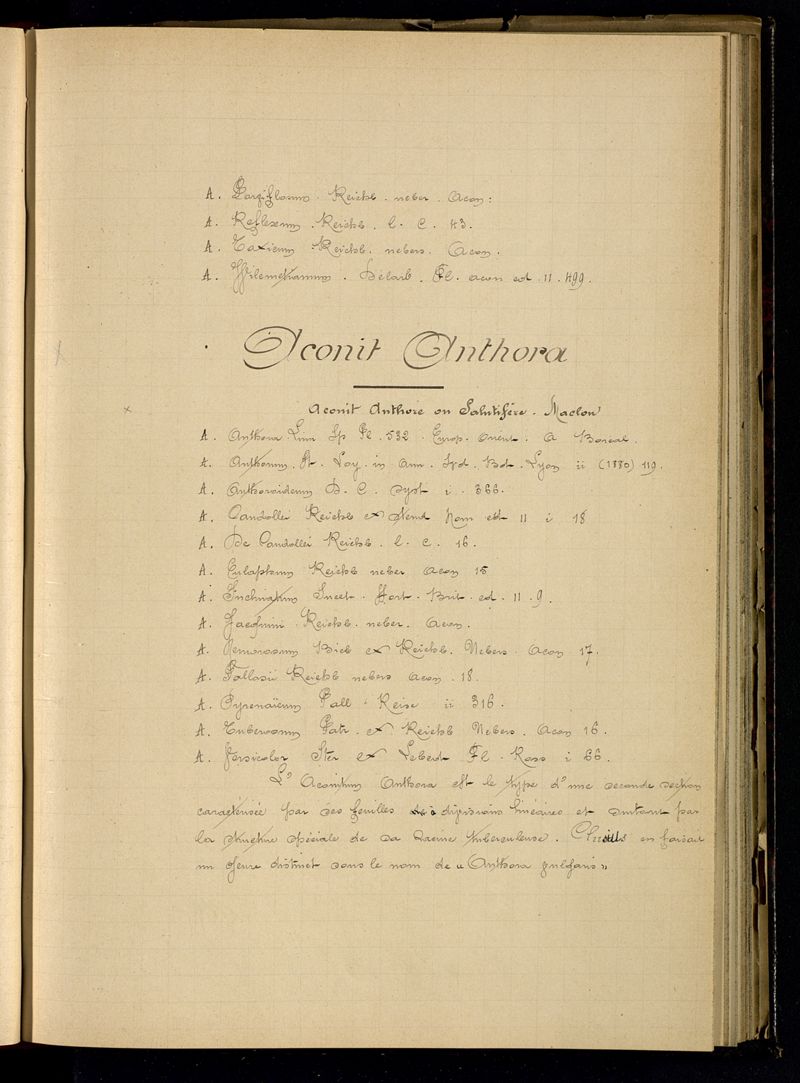 A. Parviflorum. Reichb. neber. Acon:
A. Reflexum. Reichb. l. c. 43.
A. Toxicum Reichb. nebers. Acon.
A. Willemetianum. Délarb. Fl. acon ed. 11. 499.
Aconit Anthora
Aconit Anthore ou Salutifère. Maclou
A. Anthora. Linn Sp Pl. 532. Europ. orient. A Boreal.
A. Anthorum. St. Loy. in ann. Syd. Bot. Lyon ii (1880) 119.
A. Anthoroideum D. C. Syst i. 366.
A. Candollei Reichb ex Steud Nom edt II i 18
A. De Candollei Reichb. l. c. 16.
A. Eulophum Reichb neber Acon 15
A. Inclinatum Sweet. Hort. Brit. ed. 11. 9.
A. Jacquini. Reichb. neber. Acon.
A. Nemorosum Bieb ex Reichb. Nebers. Acon 17.
A. Pallasii Reichb nebers Acon. 18.
A. Pyrenaïcum Pall. Reise ii 316.
A. Tuberosum Patr. ex Reichb Nebers. Acon 16.
A. Versicolor Ster ex Ledeb Fl. Ross i 66.
L'Aconitum Anthora est le type d'une seconde section
caractérisée par ses feuilles à divisions linéaires et surtout par
la structure spéciale de sa Racine tuberculeuse. Clusius en faisait
un genre distinct sous le nom de « Anthora vulgaris »